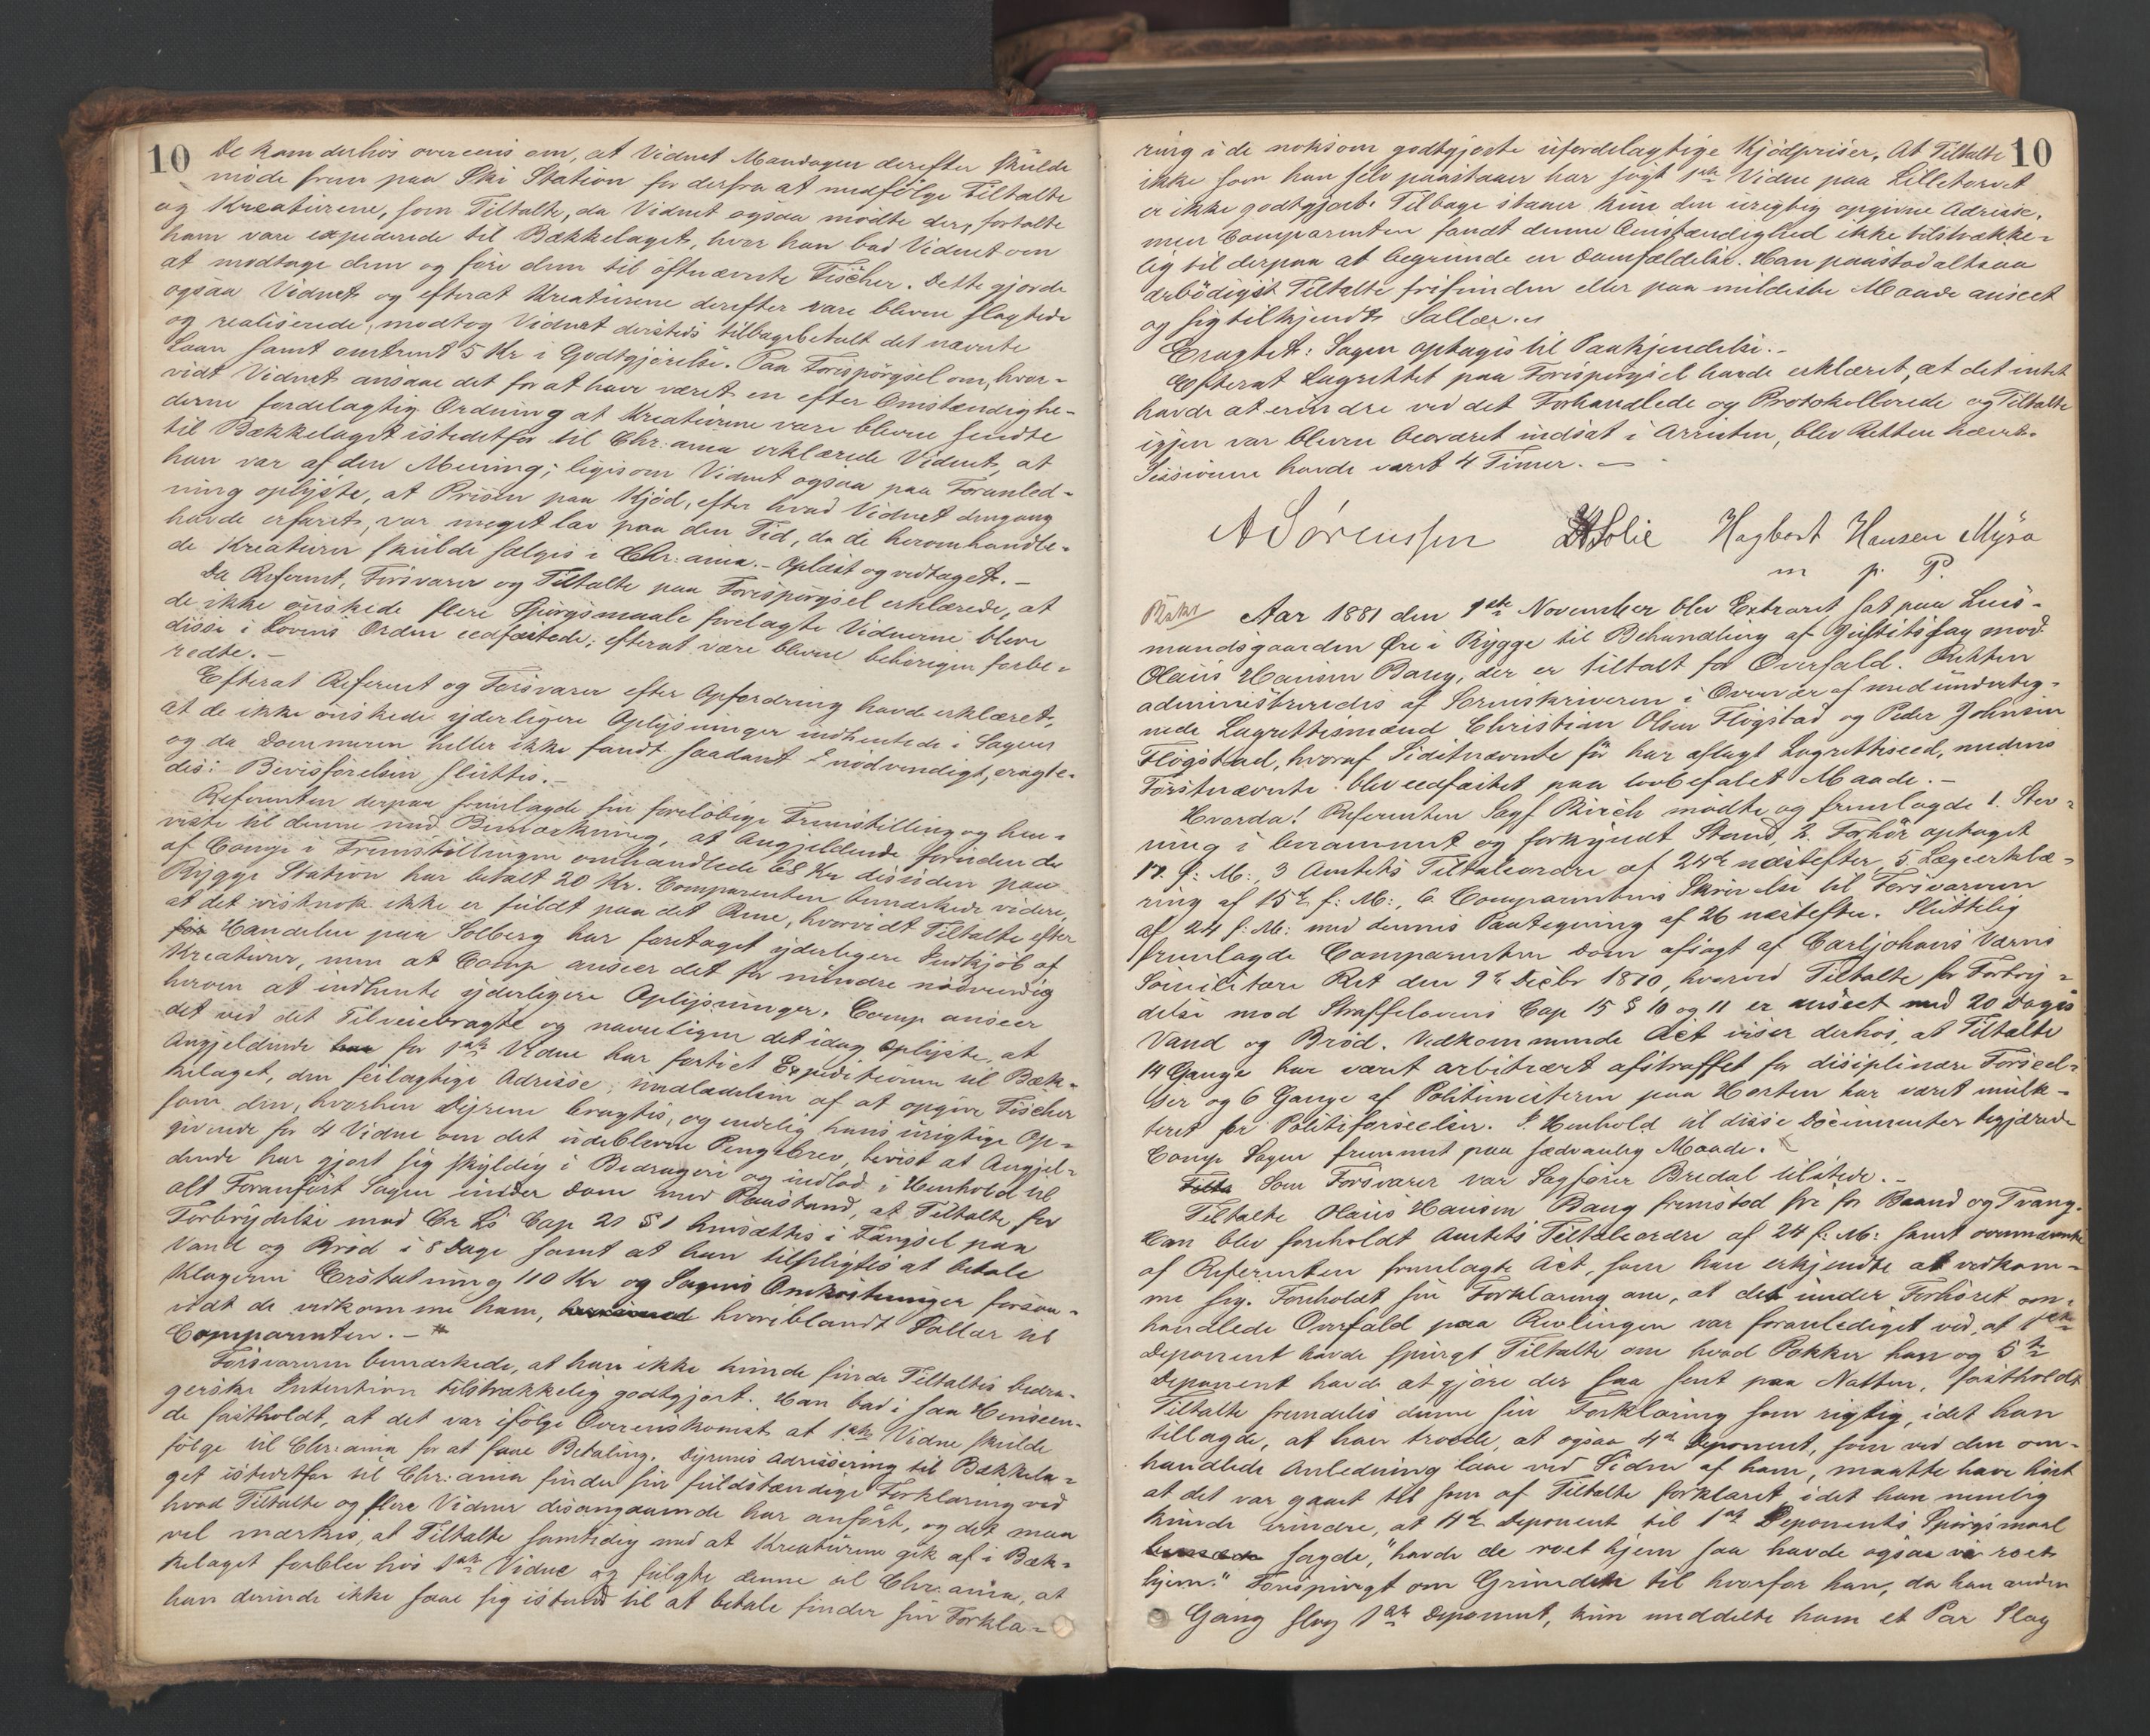 10 De kom derhos overeens om, at Vidnet Mandagen derefter skulde
møde frem paa Ski Station for derfra at medfølge Tiltalte
og Kreaturene, som Tiltalte, da Vidnet ogsaa mødte der, fortalte
ham vare expederede til Bækkelaget, hvor han bad Vidnet om
at modtage dem og føre dem til oftnævnte Fischer. Dette gjorde
ogsaa Vidnet og efterat Kreaturene derefter vare blevne slagtede
og realiserede, modtog Vidnet dersteds tilbagebetalt det nævnte
Laan samt omtrent 5 Kr i Godtgjørelse. Paa Forespørgsel om, hvor-
vidt Vidnet ansaae det for at have været en efter Omstændighe-
derne fordelagtig Ordning at Kreaturene vare blevne sendte
til Bækkelaget istedetfor til Chr:ania erklærede Vidnet, at
han var af den Mening; ligesom Vidnet ogsaa paa Foranled-
ning oplyste, at Prisen paa Kjød, efter hvad Vidnet dengang
havde erfaret, var meget lav paa den Tid, da de heromhandle-
de Kreaturer skulde sælges i Chr:ania. - Oplæst og vedtaget. -
Da Referent, Forsvarer og Tiltalte paa Forespørgsel erklærede, at
de ikke ønskede flere Spørgsmaale forelagte Vidnerne bleve
disse i Lovens Orden eedfæstede, efterat være blevne behørigen forbe-
redte. -
Efterat Referent og Forsvarer efter Opfordring havde erklæret,
at de ikke ønskede yderligere Oplysninger indhentede i Sagen
og da Dommeren heller ikke fandt saadant nødvendigt, eragte-
des: Bevisførelsen sluttes. -
Referenten derpaa fremlagde sin foreløbige Fremstilling og hen-
viste til denne med Bemærkning, at Angjeldende foruden de
af Comp i Fremstillingen omhandlede 68 Kr desuden paa
Rygge Station har betalt 20 Kr. Comparenten bemærkede videre,
at det vistnok ikke er fuldt paa det Rene, hvorvidt Tiltalte efter
Handelen paa Solberg har foretaget yderligere Indkjøb af
Kreaturer, men at Comp anseer det for mindre nødvendig
herom at indhente yderligere Oplysninger. Comp anseer
det ved det Tilveiebragte og navnligen det idag oplyste, at
Angjeldende for 1ste Vidne har fortiet Expeditionen til Bæk-
kelaget, den feilagtige Adresse, undladelsen af at opgive Fischer
som den, hvorhen Dyrene bragtes, og endelig hans urigtige Op-
givende for 4 Vidne om det udeblevne Pengebrev, bevist at Angjel-
dende har gjort sig skyldig i Bedrageri og indlod i Henhold til
alt Foranført Sagen under Dom med Paastand, at Tiltalte for
Forbrydelse mod Cr Ls Cap 21 § 1 hensættes i Fængsel paa
Vand og Brød i 8 Dage samt at han tilpligtes at betale
Klageren Erstatning 110 Kr og Sagens Omkostninger forsaa-
vidt de vedkomme ham, hvoriblandt Sallær til
Comparenten. -
Forsvareren bemærkede, at han ikke kunde finde Tiltaltes bedra-
gerske Intention tilstrækkelig godtgjort. Han bad i saa Henseen-
de fastholdt, at det var ifølge Overenskomst at 1ste Vidne skulde
følge til Chr:ania for at faae Betaling. Dyrenes Adressering til Bækkela-
get istedetfor til Chr:ania finder sin fuldstændige Forklaring ved
hvad Tiltalte og flere Vidner desangaaende har anført, og det maa
vel mærkes, at Tiltalte samtidig med at Kreaturene gik af i Bæk-
kelaget forblev hos 1ste Vidne og fulgte denne til Chr:ania, at
han derinde ikke saae sig istand til at betale finder sin Forkla-
ring i de noksom godtgjorte ufordelagtige Kjødpriser. At Tiltalte 10
ikke som han selv paastaaer har søgt 1ste Vidne paa Lilletorvet
er ikke godtgjort. Tilbage staaer kun den urigtig opgivne Adresse,
men Comparenten fandt denne Omstændighed ikke tilstrække-
lig til derpaa at begrunde en Domfældelse. Han paastod altsaa
ærbødigst Tiltalte frifunden eller paa mildeste Maade anseet
og sig tilkjendt Sallær.
Eragtet: Sagen optages til Paakjendelse. -
Efterat Lagrettet paa Forespørgsel havde erklæret, at det intet
havde at erindre ved det Forhandlede og Protokollerede og Tiltalte
igjen var bleven besværet indsat i Arresten, blev Retten hævet.
Sessionen havde varet 4 Timer. -
A Sørenssen Solie Hagbart Hansen Myra
m p. P.
Aar 1881 den 1ste November blev Extraret sat paa Lens-
mandsgaarden Øre i Rygge til Behandling af Justitssag mod
Olaus Hansen Baug, der er tiltalt for Overfald. Retten
administreredes af Sorenskriveren i Overvær af medunderteg-
nede Lagrettesmænd Christian Olsen Flogstad og Peder Johnsen
Flogstad, hvoraf Sidstnævnte før har aflagt Lagretteseed, medens
Førstnævnte blev eedfæstet paa lovbefalet Maade. -
Hvorda! Referenten Sagf Birch mødte og fremlagde 1. Stev-
ning i berammet og forkyndt Stand, 2. Forhør optaget
17. f: M:, 3 Amtets Tiltaleordre af 24de næstefter, 5. Lægeerklæ-
ring af 15de f: M:, 6. Comparentens Skrivelse til Forsvareren
af 24 f: M: med dennes Paategning af 26 næstefter. Sluttelig
fremlagde Comparenten Dom afsagt af Carljohans Værns
Sømilitære Ret den 9de Decbr 1870, hvorved Tiltalte for Forbry-
delse mod Straffelovens Cap 15 § 10 og 11 er anseet med 20 Dages
Vand og Brød. Vedkommende Act viser derhos, at Tiltalte
14 Gange har været arbitrært afstraffet for disciplinære Forseel-
ser og 6 Gange af Politimesteren paa Horten har været mulk-
teret for Politiforseelser. I Henhold til disse Documenter begjærede
Comp Sagen fremmet paa sædvanlig Maade.
Som Forsvarer var Sagfører Bredal tilstede. -
Tiltalte Olaus Hansen Baug fremstod fri for Baand og Tvang.
Han blev foreholdt Amtets Tiltaleordre af 24 f: M: samt ovennævnte
af Referenten fremlagte Act, som han erkjendte at vedkom-
me sig. Foreholdt sin Forklaring om, at det under Forhøret om-
handlede Overfald paa Revlingen var foranlediget ved, at 1ste
Deponent havde spurgt Tiltalte om hvad Pokker han og 5te
Deponent havde at gjøre der saa sent paa Natten, fastholdt
Tiltalte fremdeles denne sin Forklaring som rigtig, idet han
tillagde, at han troede, at ogsaa 4de Deponent, som ved den om-
handlede Anledning laae ved Siden af ham, maatte have hørt
at det var gaaet til som af Tiltalte forklaret, idet han nemlig
kunde erindre, at 4de Deponent til 1ste Deponents Spørgsmaal
sagde, "havde de roet hjem saa havde ogsaa vi roet
hjem." Forespurgt om Grunden til hvorfor han, da han anden
Gang slog 1ste Deponent, kun meddelte ham et Par Slag